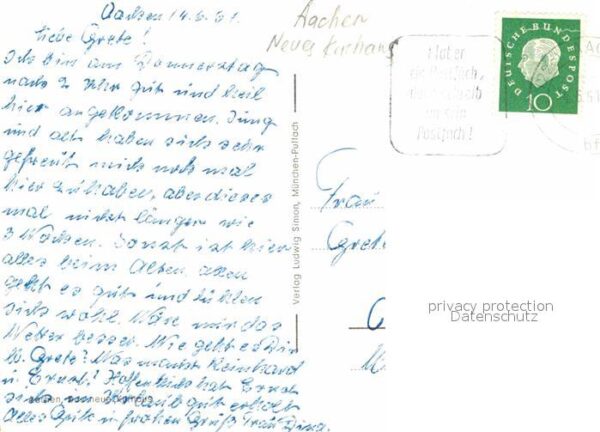 Aachen 14.6.61.
Liebe Grete!
Ich bin am Donnerstag
nach 2 Uhr gut und heil
hier angekommen. Jung
und alt haben sich sehr
gefreut mich noch mal
hier zu haben, aber dieses
mal nicht länger wie
3 Wochen. Sonst ist hier
alles beim Alten, allen
geht es gut und fühlen
sich wohl. Wäre nur das
Wetter besser. Wie geht es Dir
lb. Grete? Was macht Reinhard
u. Ernst? Hoffentlich hat Ernst
sich im Urlaub gut erholt
Alles Gute u. frohen Gruß Trau Dina.
Aachen
Neues Kurhaus
Hat er
ein Postfach,
dann schreib
an sein
Postfach!
DEUTSCHE BUNDESPOST
10
Verlag Ludwig Simon, München-Pullach
Frau
Grete
privacy protection
Datenschutz